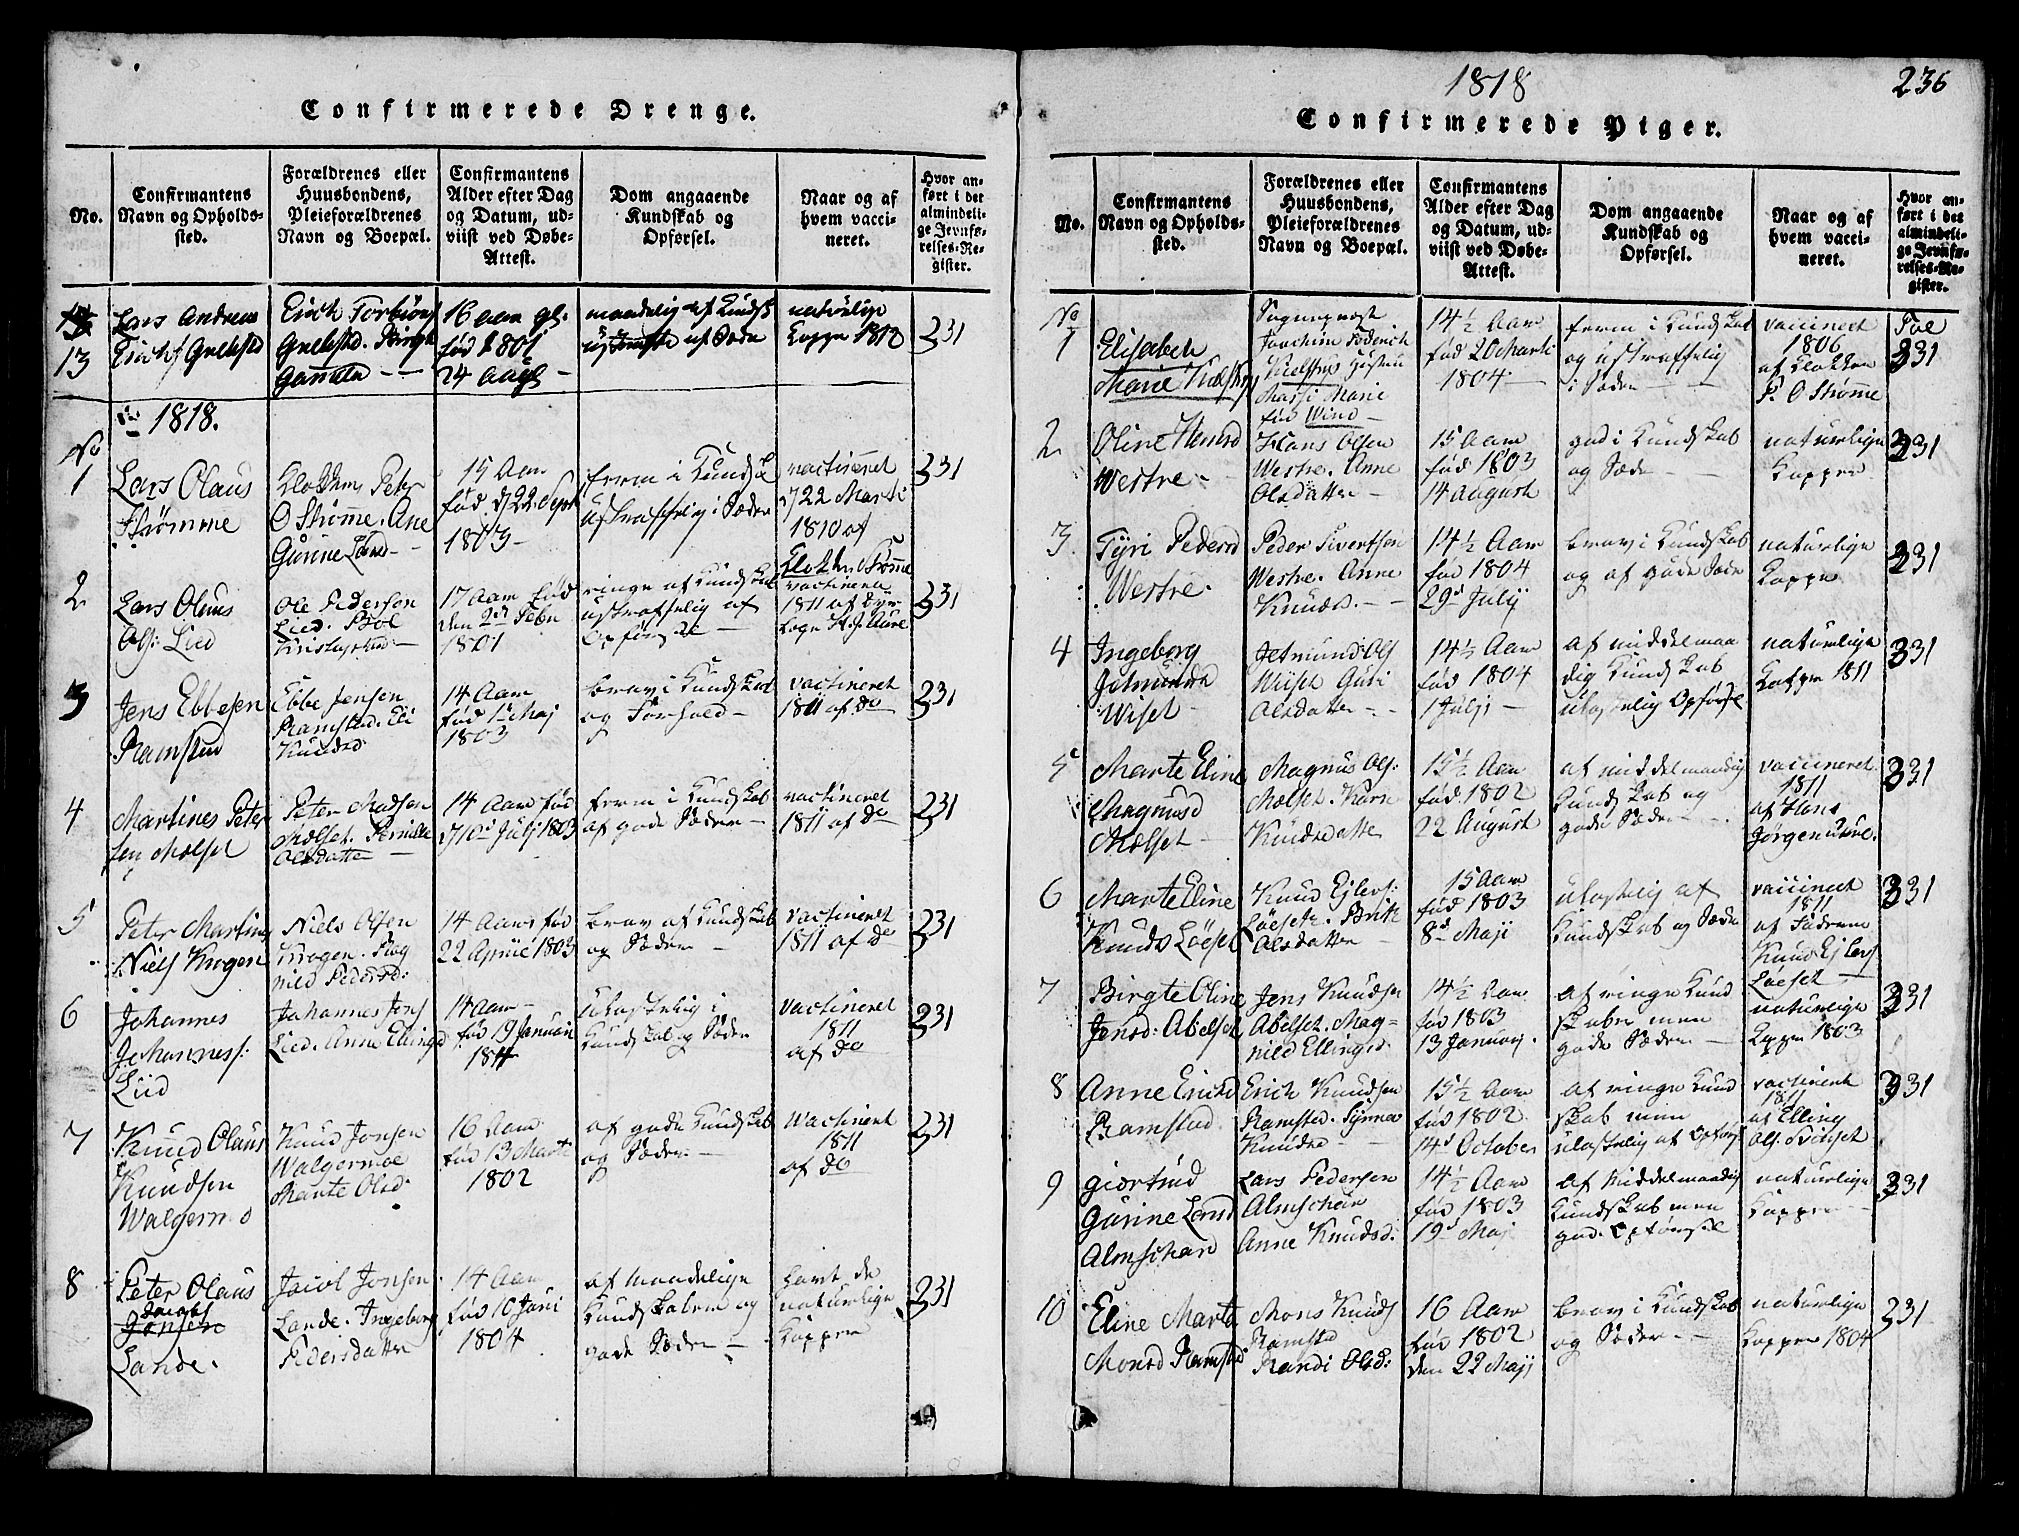 Confirmerede Drenge.
No.
Confirmantens
Navn og Opholds-
sted.
Forældrenes eller
Huusbondens,
Pleieforældrenes
Navn og Boepæl.
Confirmantens
Alder efter Dag
og Datum, ud-
viist ved Døbe-
Attest.
Dom angaaende
Kundskab og
Opførsel.
Naar og af
hvem vacci-
neret.
Hvor an-
ført i det
almindeli-
ge Jevnfø-
relses-Re-
gister.
13
Lars Andreas
Erichs
Erich
16 aar gl.
fød 1801
24 Aug
maadelig af Kundsk
af Sæder
naturlige
Kopper 1812
231
1818.
No
1
Lars Olaus
Strømme
Klokker Peter
O Strømme. Ane
Gurine
15 Aar
fød d 22 Sept
1803
ferm i Kundsk
ustraffelig i Sæder
vactineret
d 22 Marti
1810 af
Klokker Strømme
231
2
Lars Olaus
Ols: Lied
Ole Pedersen
Lied.
17 Aar fød
den 2den Febr
1801
ringe af Kundskab
ustraffelig af
vactineret
1811 af
231
3
Jens Ebbesen
Ramsted
Ebbe Jensen
Ramsted. Eli
Knudsd
14 Aar
fød 1 Maj
1803
brav i Kundskab
og Forhold
vactineret
1811 af do
231
4
Martines Peter
sen Mølset
Peter Madsen
Mølset. Pernille
Olsdatter
14 Aar fød
d 10d Julj 1803
ferm i Kundskab
af gode Sæder
vactineret
1811 af do
231
5
Peter Martin
Niels Krogen
Niels Olsen
Krogen. Rag
nild Pedersd:
14 Aar fød
22 April 1803
brav af Kundskab
og Sæder
vactineret
1811 af do
231
6
Johannes
Johanness:
Lied
Johannes Jons
Lied. Anne Ellingsd
14 Aar
fød 19 Januari
ulastelig i
Kundskab og Sæder
vactineret
1811
af do
231
7
Knud Olaus
Knudsen
Walgermo
Knud Jonsen
Walgermoe
Marte Olsd:
16 Aar
fød 13 Marti
1802
af gode Kundskab
og Sæder
Vactineret
1811
af do
231
8
Peter Olaus
Jacobs
Jonsen
Lande.
Jacob Jonsen
Lande. Ingeborg
Pedersdatter
14 Aar
fød 10 Juni
1804
af maadelige
Kundskaber og
gode Sæder
havt de
naturlige
Kopper
231
1818
236
Confirmerede Piger.
No.
Confirmantens
Navn og Opholds-
sted.
Forældrenes eller
Huusbondens,
Pleieforældrenes
Navn og Boepæl.
Confirmantens
Alder efter Dag
og Datum, ud-
viist ved Døbe-
Attest.
Dom angaaende
Kundskab og
Opførsel.
Naar og af
hvem vacci-
neret.
Hvor an-
ført i det
almindeli-
ge Jevnfø-
relses-Re-
gister.
No
1
Elisabeth
Marie
Sogneprest
Joachim
Marie
fød Wind
14½ Aar
fød 20 Marti
1804
ferm i Kundskab
og ustraffelig
i Sæder
vaccineret
1806
af Klokker
P. O Strømme
Fol
231
2
Oline Hansd
Westre
Hans Olsen
Westre. Anne
Olsdatter
15 Aar
fød 1803
14 August
god i Kundskab
og Sæder
naturlige
Kopper
231
3
Tyri Pedersd
Westre.
Peder Sivertsen
Westre. Anne
Knuds.
14½ Aar
fød 1804
29d Julij
brav i Kundskab
og af gode Sæder
naturlige
Kopper
231
4
Ingeborg
Wiset
Jetmund Ols
Wiset Guri
Olsdatter
14½ Aar
fød 1804
1 Julj
af middelmaa
dig Kundskab
ulastelig Opførsel
naturlige
Kopper 1811
231
5
Marte Eline
Magnusd
Mølset
Magnus Ols:
Mølset. Karn
Knudsdatter
15½ Aar
fød 1802
22 August
af middelmaadig
Kundskab og
gode Sæder
vaccineret
1811
af Hans
Jørgen Aure.
231
6
Marte Eline
Knuds Løeset
Knud Ejlers:
Løeset. Brit
Olsdatter
15 Aar
fød 1803
8d Maji
ulastelig af
Kundskab og Sæder
vaccineret
1811
af Faderen
Knud Ejlers
Løeset
231
7
Birgte Oline
Jensd: Abelset
Jens Knudsen
Abelset. Mag=
nild Ellingsd:
14½ Aar
fød 1803
13 Januarj.
af ringe Kund
skaber men
gode Sæder
naturlige
Kopper 1803
231
8
Anne Ericksd
Ramstad
Erich Knudsen
Ramsted.
Knudsd
15½ Aar
fød 1802
14d October
af ringe Kund
skab men
ulastelig af Opførs:
vactineret
1811
af Elling
Ols
231
9
Giørtrud
Gurine Larsd
Almschaar
Lars Pedersen
Almschaar
Anne Knudsd:
14½ Aar
fød 1803
19d Maj
af Middelmaadig
Kundskab men
god Opførsel
naturlige
Kopper
231
10
Eline Marta
Monsd Ramstad
Mons Knuds
Ramsted
Randi Olsd:
16 Aar
fød 1802
den 22 Maji
brav i Kundskab
og Sæder
naturlige
Kopper 1804
231